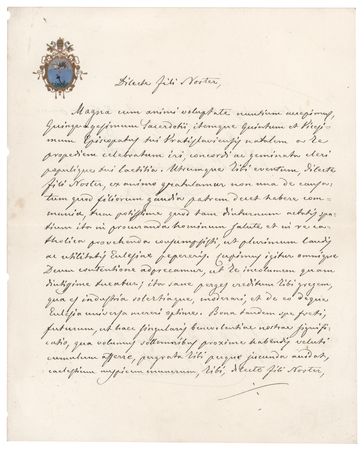 Dilecte Fili Noster,
Magna cum animi voluptate nuntium accepimus,
Quinquagesimum Sacerdotii, itemque Quintum et Vicesi-
mum Episcopatus tui Pratislaviensis natalem a Te
propediem celebratum iri, concordi ac geminata cleri
populique tui laetitia. Utrumque Tibi eventum, dilecte
Fili Noster, ex animo gratulamur non una de causa,
tum quod filiorum gaudia patrem decet habere com-
munia, tum potissimum quod tam diuturnum aetatis spa-
tium ita in procuranda hominum salute et in re ca-
tholica provehenda consumpsisti, ut plurimum laudis
ac utilitatis Ecclesiae pepereris. Cupimus igitur omnique
Deum contentione adprecamur, ut Te incolumem quam
diutissime tueatur; ita sane perges creditum Tibi gregem,
qua es industria solertiaque, moderari, et de eo deque
Ecclesia universa mereri optime. Bona tandem spe freti,
futurum, ut haec singularis benevolentiae nostrae signifi-
catio, qua volumus sollemnibus proxime habendis veluti
cumulum afferre, pergrata Tibi perque jucunda accidat,
caelestium auspicem munerum, Tibi, dilecte Fili Noster,